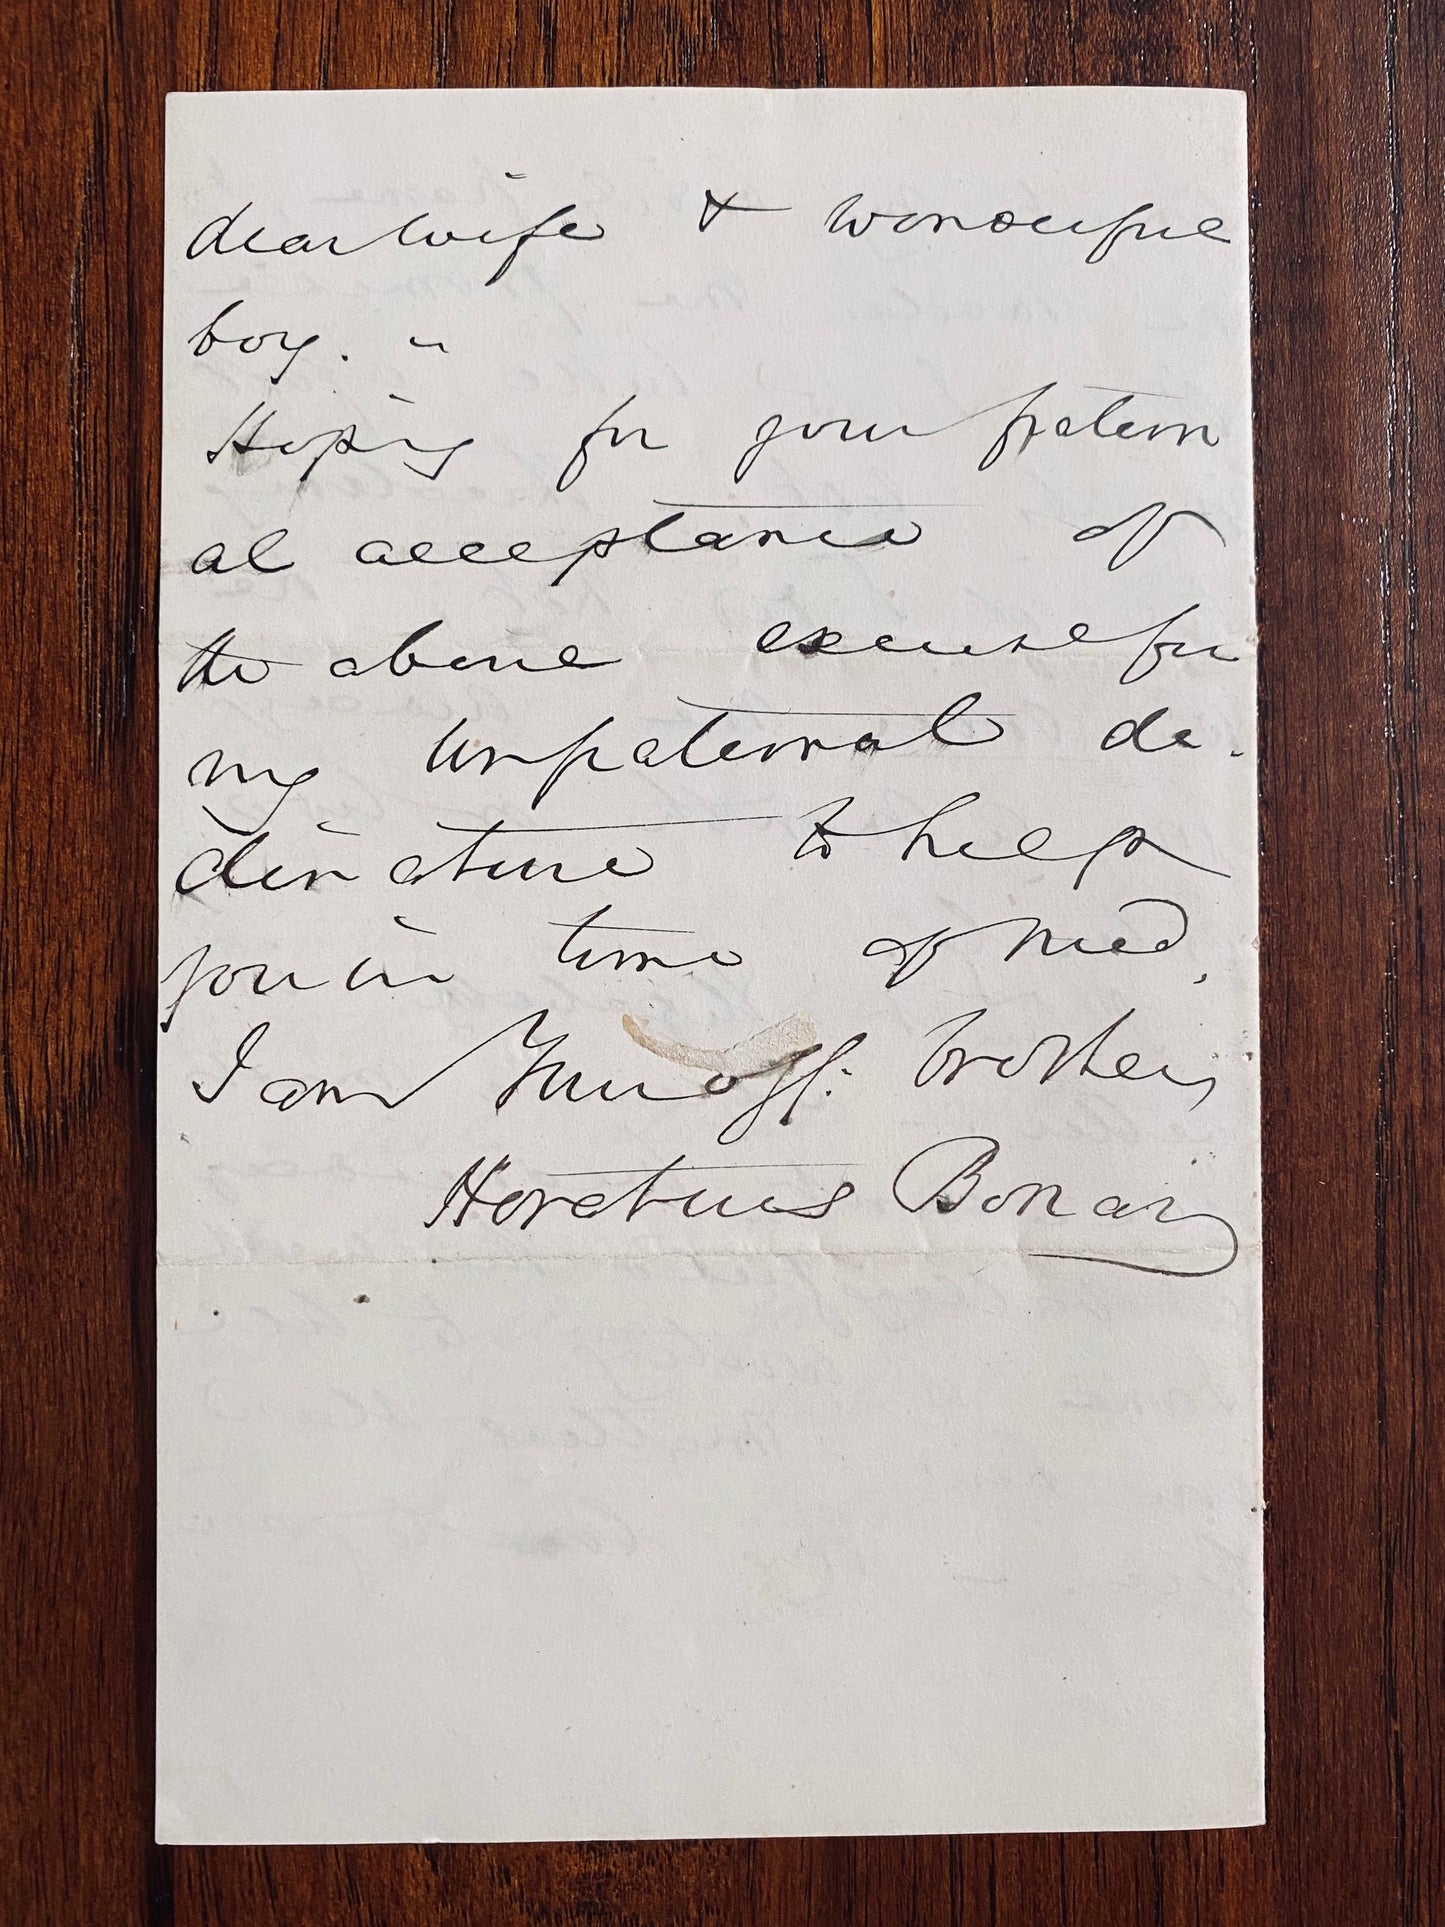 dear wife & wonderful
boy. "
Hoping for your fratern
al acceptance of
the above excuse for
my unfraternal de-
clinature to help
you in time of need,
I am Your aff: brother,
Horatius Bonar